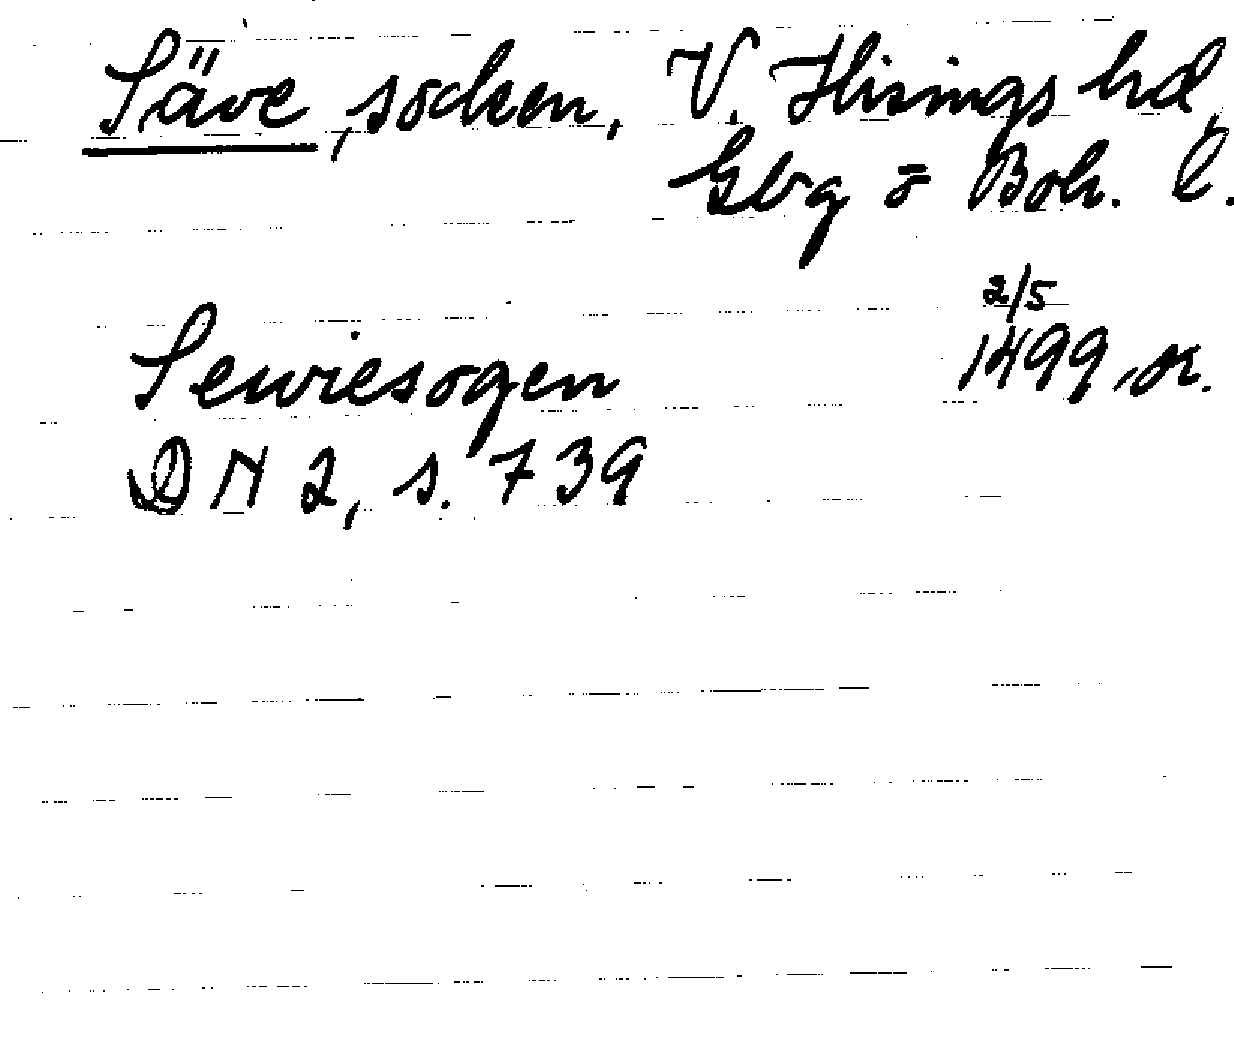 Säve, socken, V. Hisings hd,
Gbg o Boh. l.
2/5
Sewiesogen 1499, or.
DN 2, s. 739